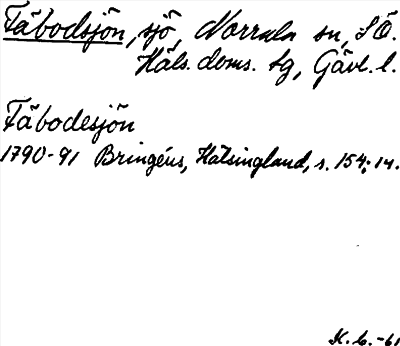 Fäbodsjön, sjö, Norrala sn, SÖ.
Häls. doms. tg, Gävl. l.
Fäbodesjön
1790-91 Bringéus, Hälsingland, s. 154; 14.
K. G. -61